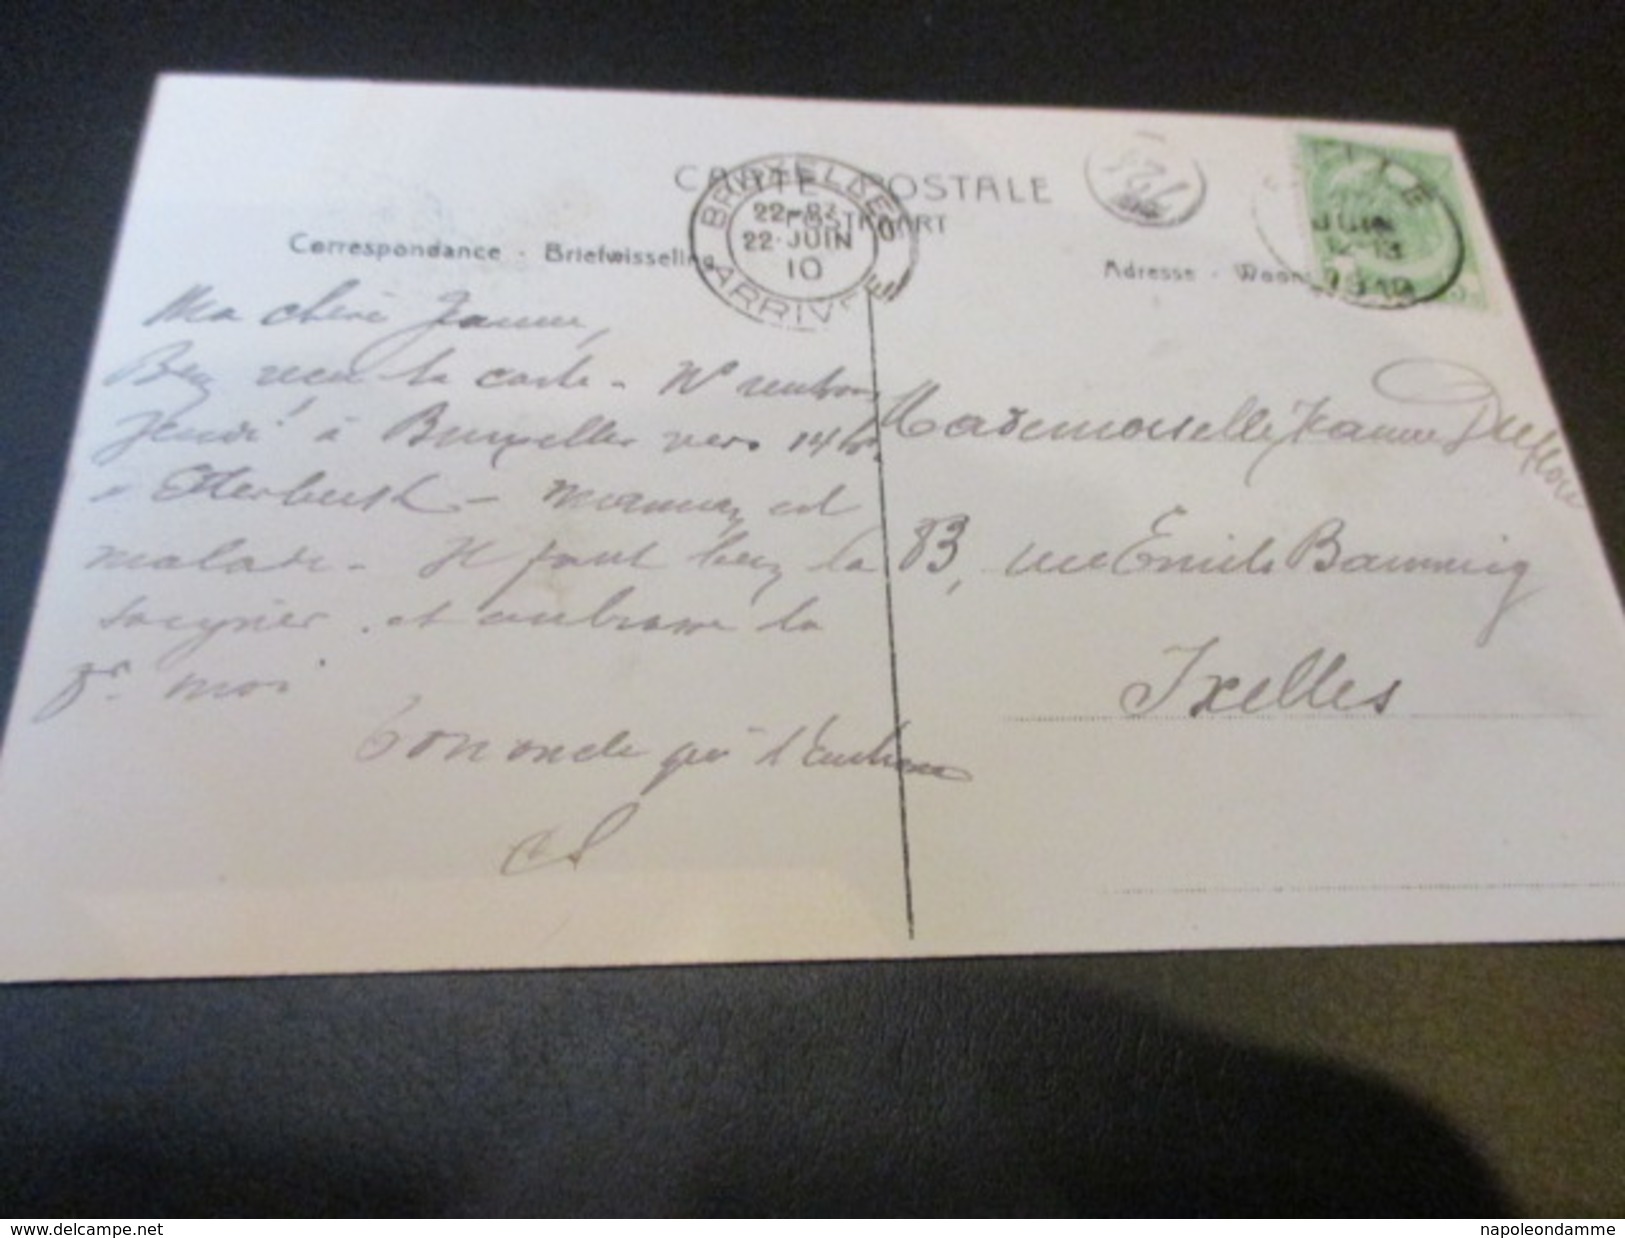 CARTE POSTALE
POSTKAART
Correspondance - Briefwisseling
Adresse - Woon
BRUXELLES
22-8
22-JUIN
10
ARRIVÉE
JUIN
12-13
1910
Ma chère Jeanne,
Bien reçu ta carte - Ns rentrons
Jeudi à Bruxelles vers 14 h.
à Etterbeek - Maman est
malade - Il faut bien la
soigner. et embrasse la
pr. moi
Ton oncle qui t'embrasse
Mademoiselle Jeanne
83, rue Emile Banning
Ixelles
delcampe.net
napoleondamme